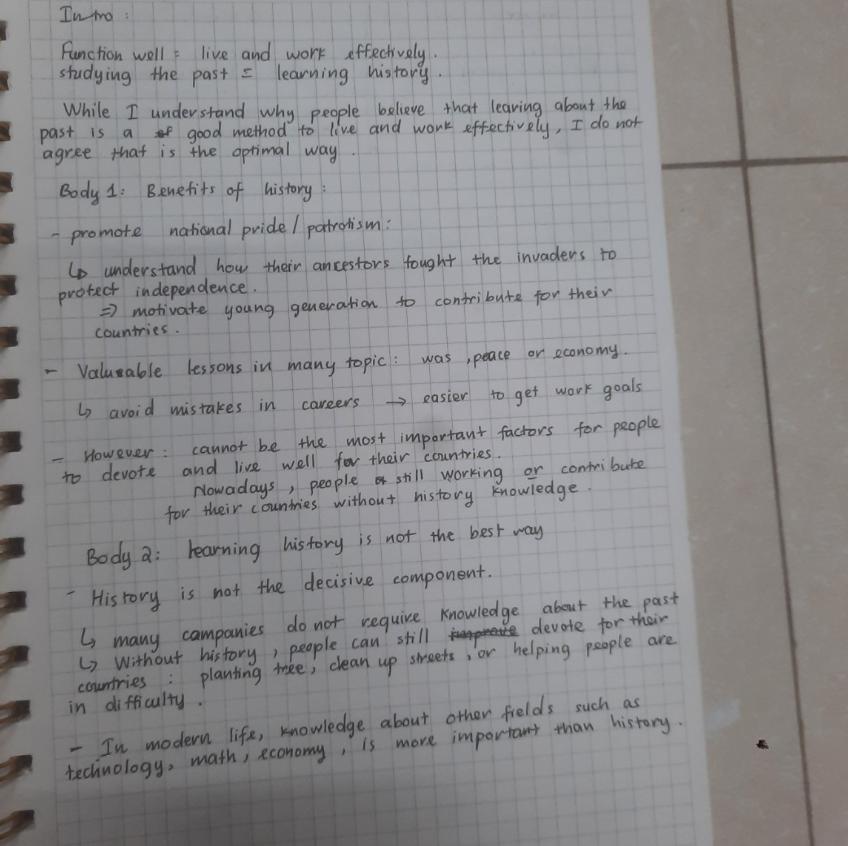 Intro :
Function well = live and work effectively.
studying the past = learning history.
While I understand why people believe that learing about the
past is a good method to live and work effectively, I do not
agree that is the optimal way.
Body 1: Benefits of history :
- promote national pride / patrotism :
↳ understand how their ancestors fought the invaders to
protect independence.
⇒ motivate young generation to contribute for their
countries.
- Valuable lessons in many topic : was, peace or economy.
↳ avoid mistakes in careers → easier to get work goals
- However : cannot be the most important factors for people
to devote and live well for their countries.
Nowadays, people still working or contribute
for their countries without history knowledge.
Body 2: learning history is not the best way
- History is not the decisive component.
↳ many companies do not require knowledge about the past
↳ Without history, people can still devote for their
countries : planting tree, clean up streets, or helping people are
in difficulty.
- In modern life, knowledge about other fields such as
technology, math, economy, is more important than history.